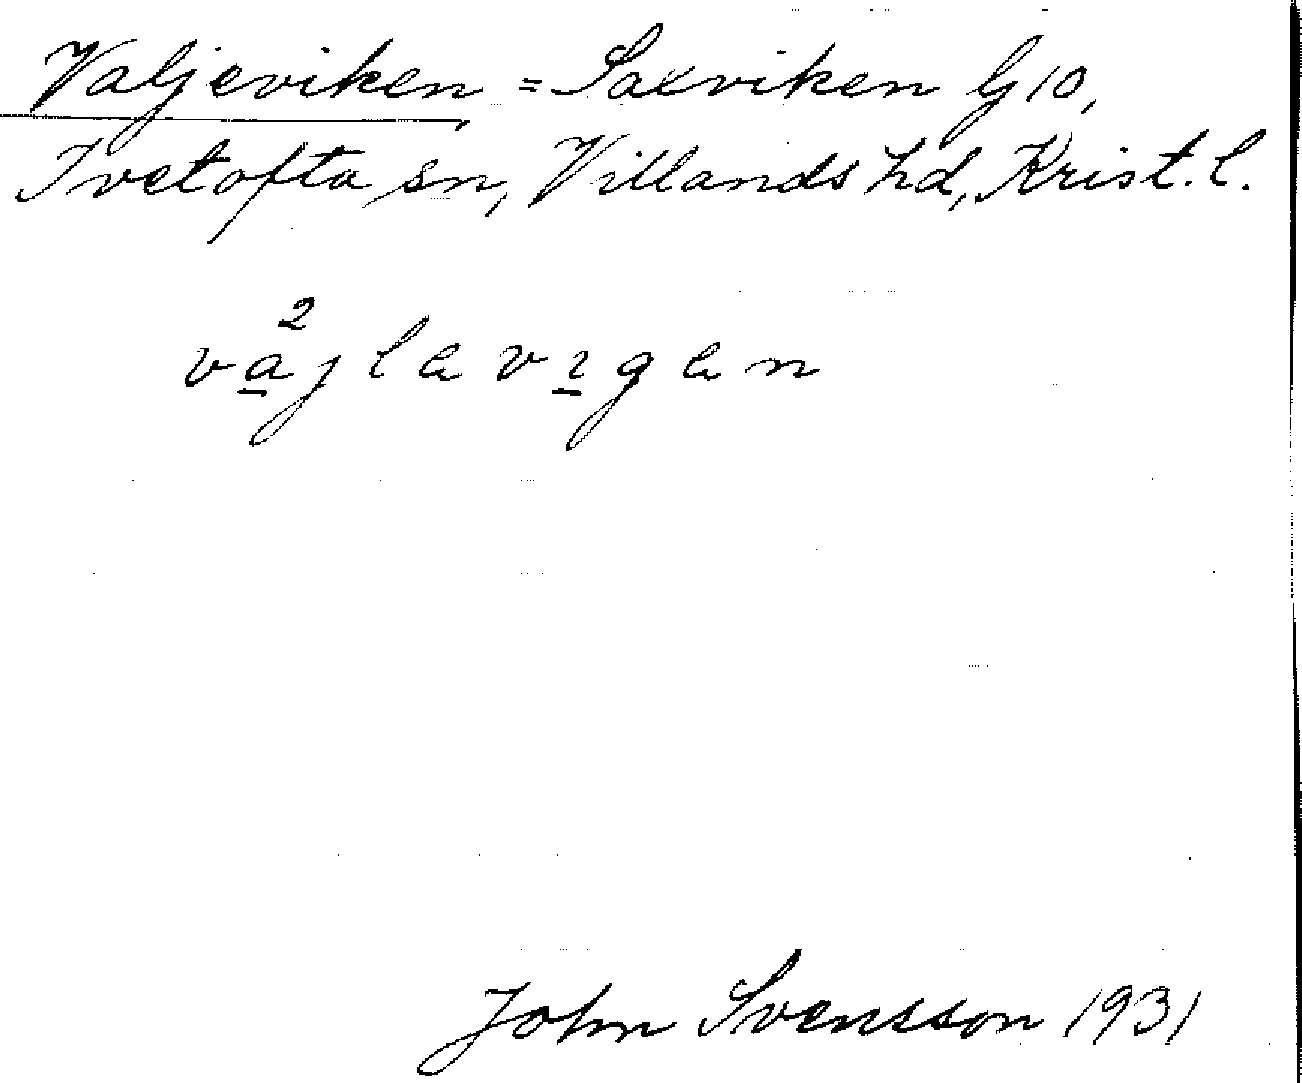 Valjeviken = Saxviken G10,
Ivetofta sn, Villands hd, Krist. l.
2
vajlavigan
John Svensson 1931